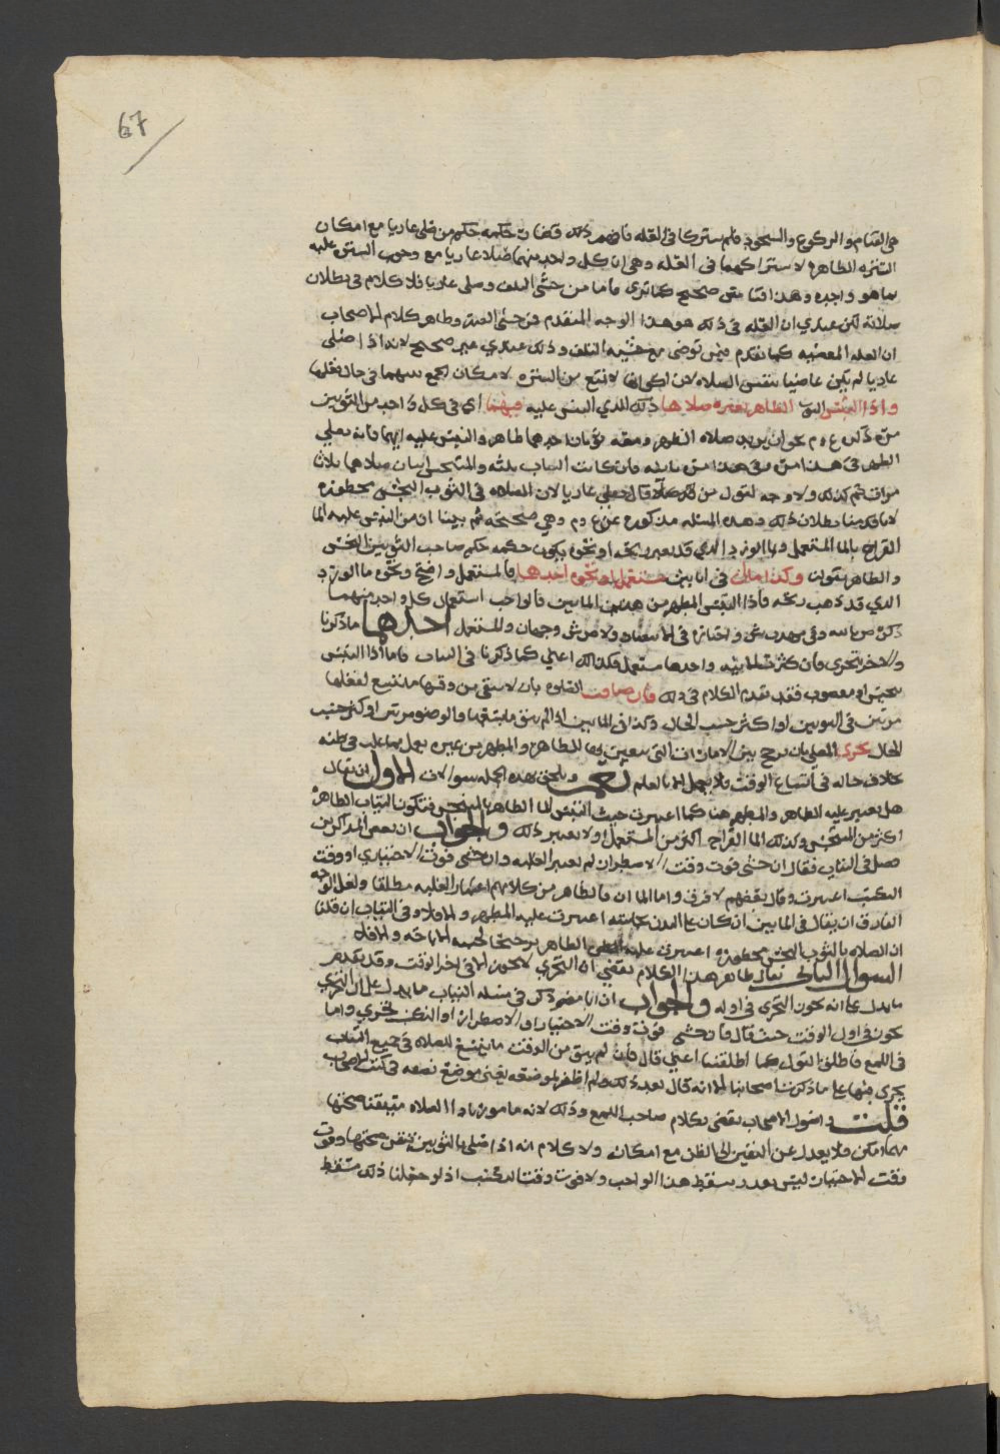 67
هي القيام والركوع والسجود فلم يشتركا في العله فافهم ذلك فكان حكمه حكم من صلى عاريا مع امكان
الستره الطاهره لاشتراكهما في العله وهي ان كل واحد منهما صلا عاريا مع وجوب الستر عليه
بما هو واجده وهذا قياس صحيح كما ترى فاما من خشي التلف وصلى عاريا فلا كلام في بطلان
صلاته لكن عندي ان العله في ذلك هو هذا الوجه المتقدم وظاهر كلام الاصحاب
ان العله المعصيه كما تقدم فيمن توضى مع خشية التلف وذلك عندي غير صحيح لانه اذا صلى
عاريا لم يكن عاصيا بنفس الصلاه لان لا تمنع من الستره لامكان الجمع بينهما في حال فعلها
واذا التبس الثوب الطاهر بغيره صلاها ذلك الذي التبس عليه فيهما اي في كل واحد من الثوبين
مره ذكره ع م نحو ان يريد صلاه الظهر ومعه ثوبان احدهما طاهر والتبس عليه ايهما فانه يصلي
الظهر في هذا مره وفي هذا مره ثانيه فان كانت الثياب ثلثه والمتنجس اثنان صلاهما ثلاث
مرات ثم كذلك ولا وجه لقول من قال يصلي عاريا لان الصلاه في الثوب النجس محظوره
لانا قد بينا بطلان ذلك وهذه المسئله مذكوره عن ع وم وهي صحيحه ثم بينا ان من التبس عليه الما
القراح بالما المستعمل وما الورد الذي قد تغير ريحه او نحوه يكون حكمه حكم صاحب الثوبين النجس
والطاهر بقوله وكذا ماان في انايين مستعمل او نحوه احدهما فالمستعمل واضح ونحوه ما الورد
الذي قد ذهب ريحه فاذا التبس المطهر من هذين الماين فالواجب استعمال كل واحد منهما
ذكره ولا مرش وجهان والمستعمل احدهما ما ذكرنا
والاخر يتحرى فان كثرت المياه واحدها مستعمل فكذلك اعني كما ذكرنا في الثياب فاما اذا التبس
بنجس او مغصوب فقد تقدم الكلام في ذلك فان ضاقت الصلوه بان لا يبقى من وقتها ما يتسع لفعلها
مرتين في الثوبين او اكثر حسب الحال وكذا في الماين اذا لم يبق ما يتسعها والوضو مرتين او اكثر حسب
الحال تحرى المصلي بان يرجح بين الامارات التي يتعين بها للطاهر والمطهر من غيره يعمل بما غلب في ظنه
بخلاف حاله في اتساع الوقت فلا يعمل الا بالعلم نعم ويلحق بهذه الجمله سوالان الاول ان يقال
هل يعتبر غلبه الطاهر والمطهر هنا كما اعتبرت حيث التبس الما الطاهر بالمتنجس فتكون الثياب الطاهره
اكثر من المتنجس وكذلك الما القراح اكثر من المستعمل او لا يعتبر ذلك والجواب ان بعض المذاكرين
فصل في الثياب فقال ان خشي فوت وقت الاضطرار لم تعتبر الغلبه وان خشي فوت الاختياري او وقت
اعتبرت وقال بعضهم لا فرق واما الما ان فالظاهر من كلامهم اعتبار الغلبه مطلقا ولعل الوجه
الفارق ان يقال في الماين ان كان على البدن نجاسه اعتبرت غلبه المطهر والا فلا وفي الثياب ان قلنا
ان الصلاه بالثوب النجس محظوره اعتبرت غلبه الطاهر ترجيحا لجنبه الاباحه والا فلا
السوال الثاني يقال ظاهر هذا الكلام يقتضي ان التحري لا يجوز الا في اخر الوقت وقد تقدم
ما يدل على انه يجوز التحري في اوله والجواب ان ذكر في مسئله الثياب ما يدل على ان التحري
يجوز في اول الوقت حيث قال فان خشي فوت وقت الاختيار او الاضطرار تحرى واما
في اللمع فاطلق القول كما اطلقنا اعني قال فان لم يبق من الوقت ما يتسع للصلاه في جميع الثياب
تحرى فيها على ما ذكره اصحابنا الا انه قال بعد ذلك ولم اظفر لموضعه يعني موضع نصه في كتب الاصحاب
قلت واصول الاصحاب تقضي بكلام صاحب اللمع وذلك لانه مامور باداء الصلاه متيقنا صحتها
مهما امكن فلا يعدل عن اليقين الى الظن مع امكانه ولا كلام انه اذا صلى بالثوبين تيقن صحتها وفوت
وقت الاختيار ليس بعذر يسقط هذا الواجب ولا فوت وقت اذ لو جعلنا ذلك مسقط